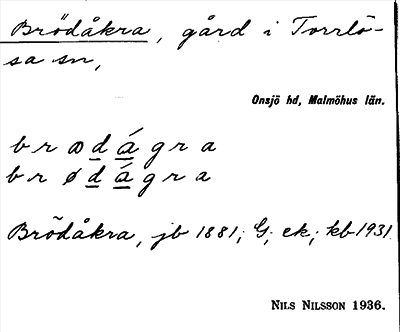 Brödåkra, gård i Torrlö-
sa sn,
Onsjö hd, Malmöhus län.
br œdágra
br ødágra
Brödåkra, jb 1881; G; ek; kb 1931
NILS NILSSON 1936.